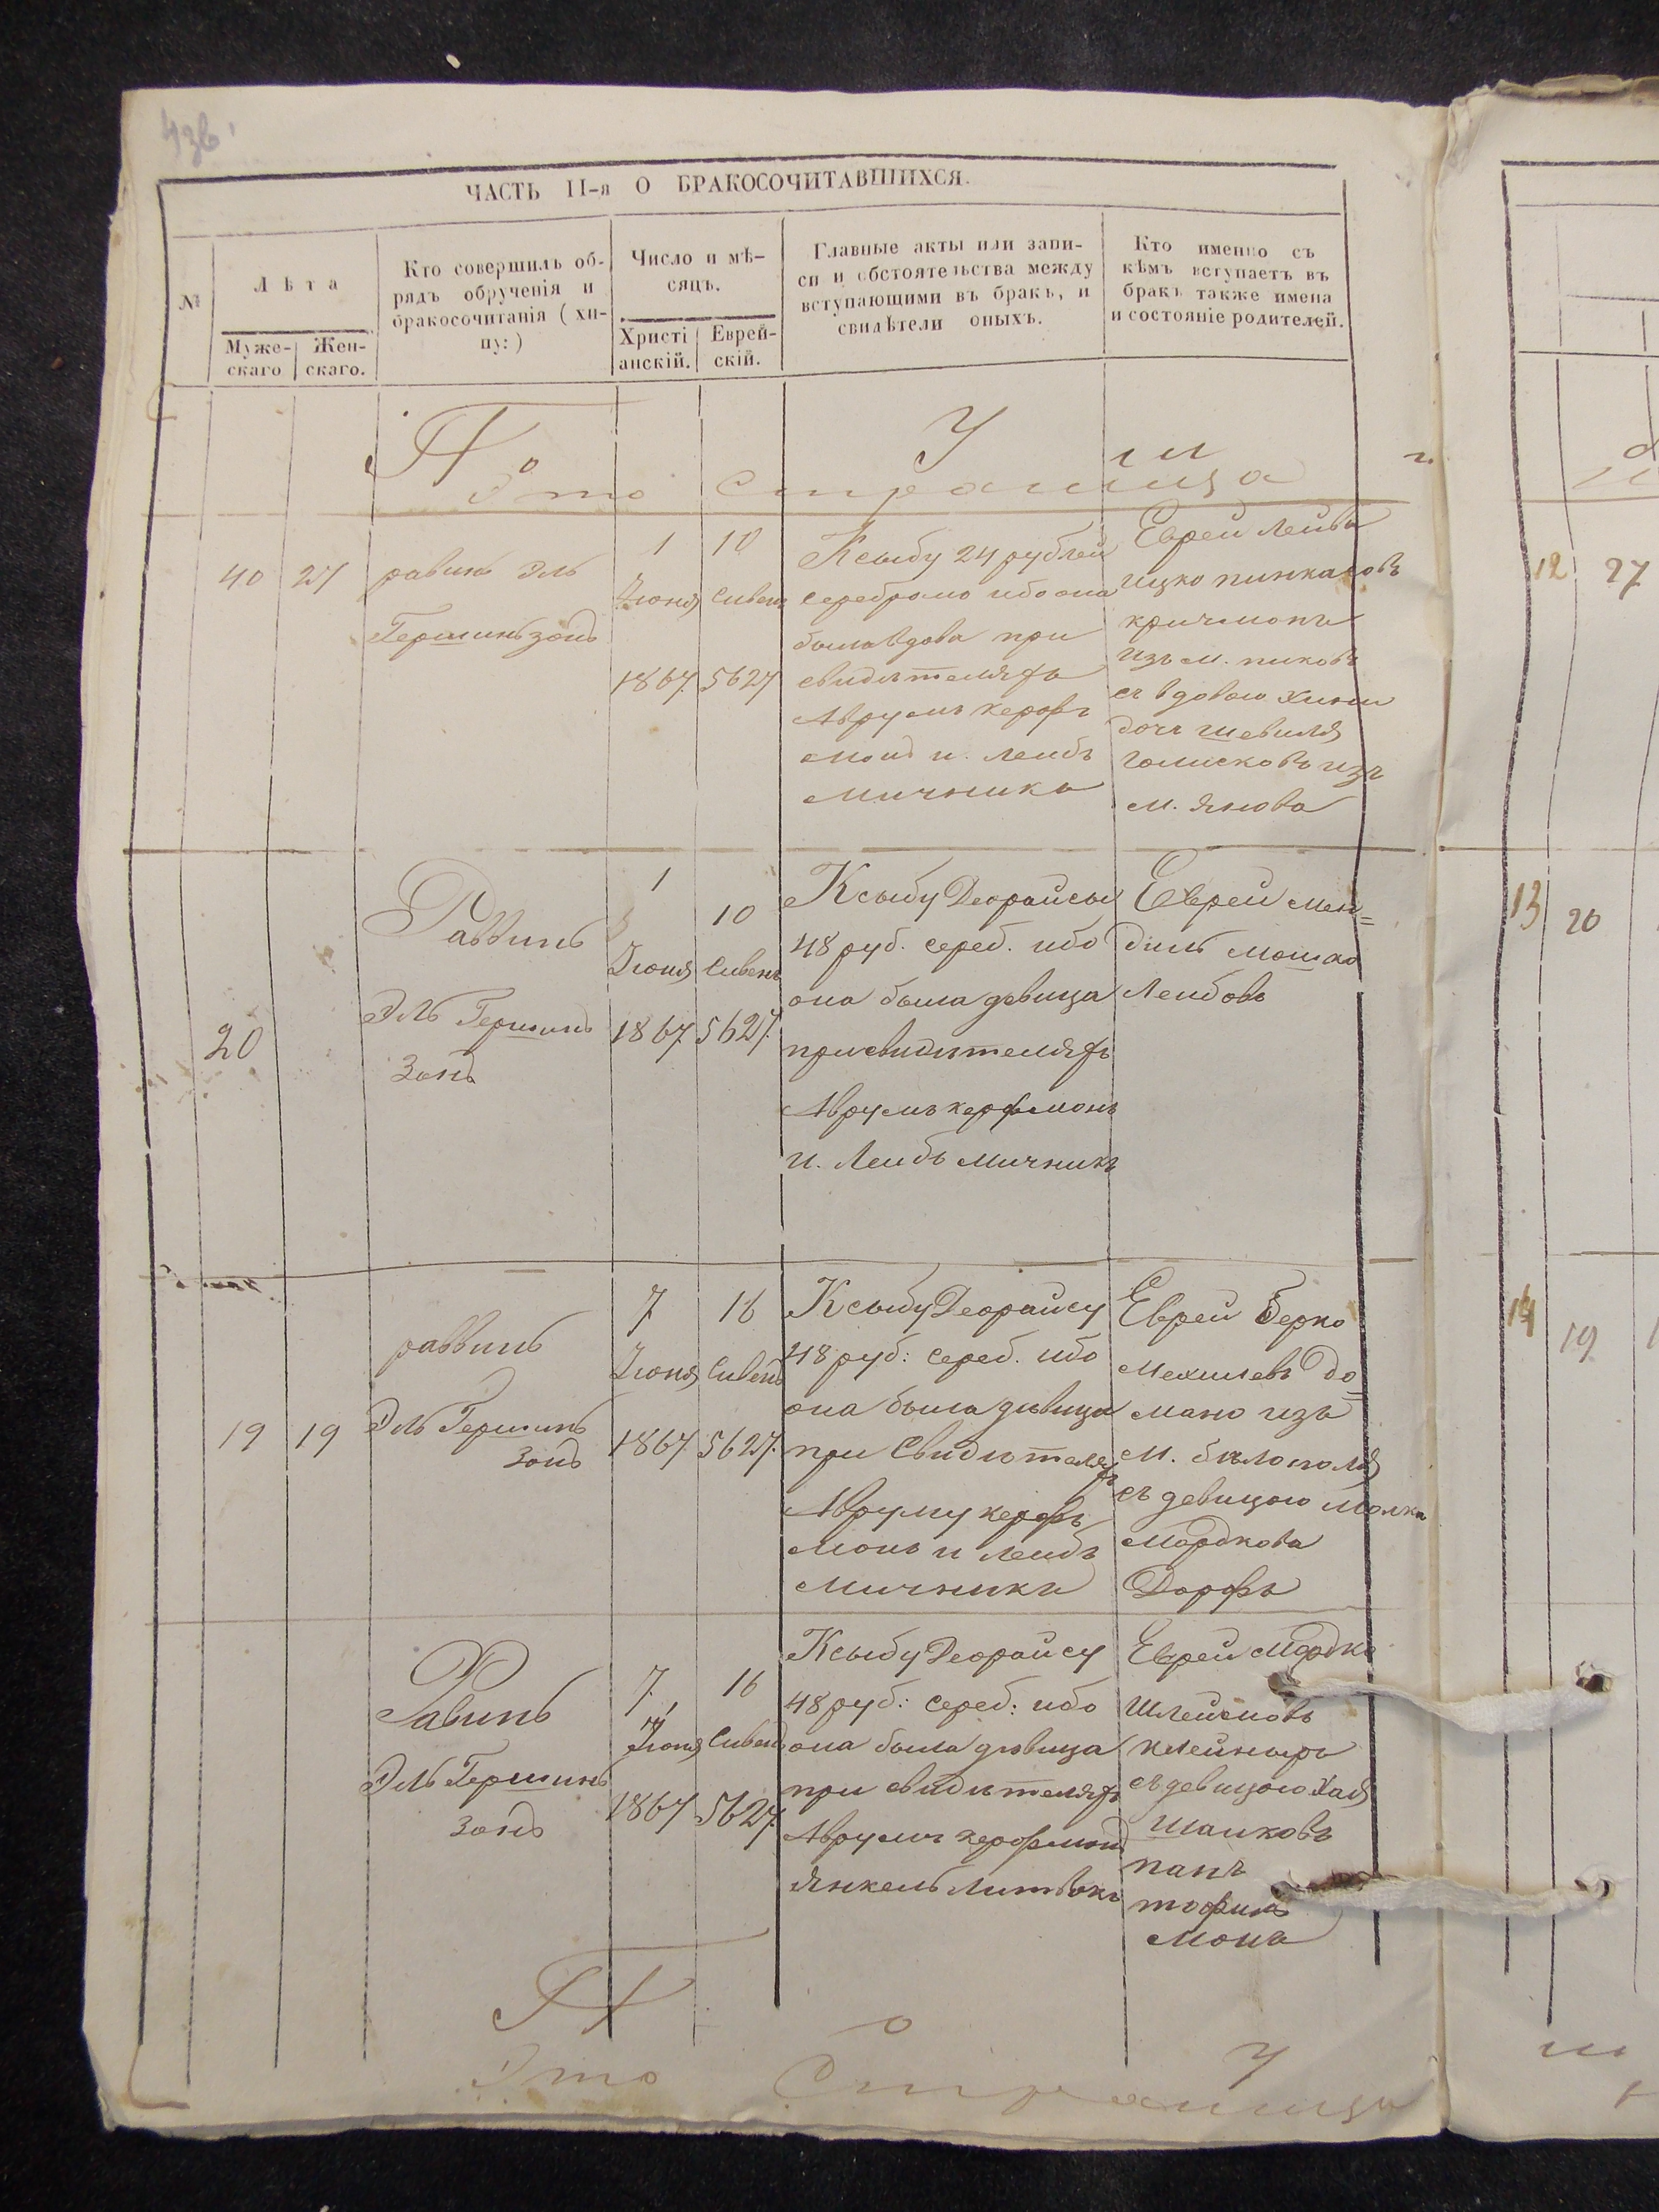 ЧАСТЬ II-я О БРАКОСОЧИТАВШИХСЯ.
№
Лѣта
Муже-
скаго
Жен-
скаго.
Кто совершилъ об-
рядъ обрученія и
бракосочитанія (хи-
пу:)
Число и мѣ-
сяцъ.
Христі
анскій.
Еврей-
скій.
Главные акты или запи-
си и обстоятельства между
вступающими въ бракъ, и
свидѣтели оныхъ.
Кто именно съ
кѣмъ вступаетъ въ
бракъ также имена
и состояніе родителей.
По
Это страница
40
27
равинъ Эль
Гершинзонъ
1
Іюня
1867
10
Сивенъ
5627
Ксыбу 24 рублей
серебромъ ибо она
была вдова при
свидѣтеляхъ
Аврумъ керфъ
монъ и Лейбъ
мичника
Еврей Лейба
ицко пинкасовъ
кричмонъ
изъ м. пиковъ
съ вдовою
дочъ шевиля
изъ
м. Янова
20
Раввинъ
Эль Гершинъ
Зонъ
1
Іюня
1867
10
Сивенъ
5627.
Ксыбу Деорайсы
48 руб. сереб. ибо
она была девица
при свидѣтеляхъ
Аврумъ керфмонъ
и. Лейбъ мичникъ
Еврей мен=
диль мошко
Лейбовъ
19
19
раввинъ
Эль Гершинъ
Зонъ
7
Іюня
1867
16
Сивенъ
5627.
Ксыбу Деорайсу
48 руб: сереб. ибо
она была дѣвица
при Свидѣтеляхъ
Авруму керфъ
монъ и лейбъ
мичника
Еврей Берко
Мехилевъ До=
мано изъ
м. бѣлополя
съ девицою Малка
Мордкова
Дорфъ
Равинъ
Эль Гершинъ
Зонъ
7
Іюня
1867
16
Сивенъ
5627.
Ксыбу Деорайсу
48 руб: сереб: ибо
она была дѣвица
при свидѣтеляхъ
Аврумъ керфмонъ
Янкель Литвокъ
Еврей Мордко
Шлеймовъ
клейнеръ
съ девицою Хая
Шаиковъ
пан
тофил
монъ
По
Это страница
12
27
13
20
14
19